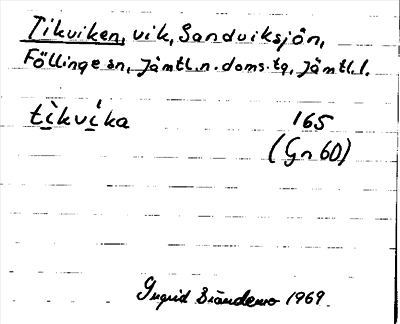 Tikviken, vik, Sandviksjön,
Föllinge sn, Jämtl.n.doms.tg, Jämtl.l.
tìkvíka 165
(Gn 60)
Ingrid Brändemo 1969.